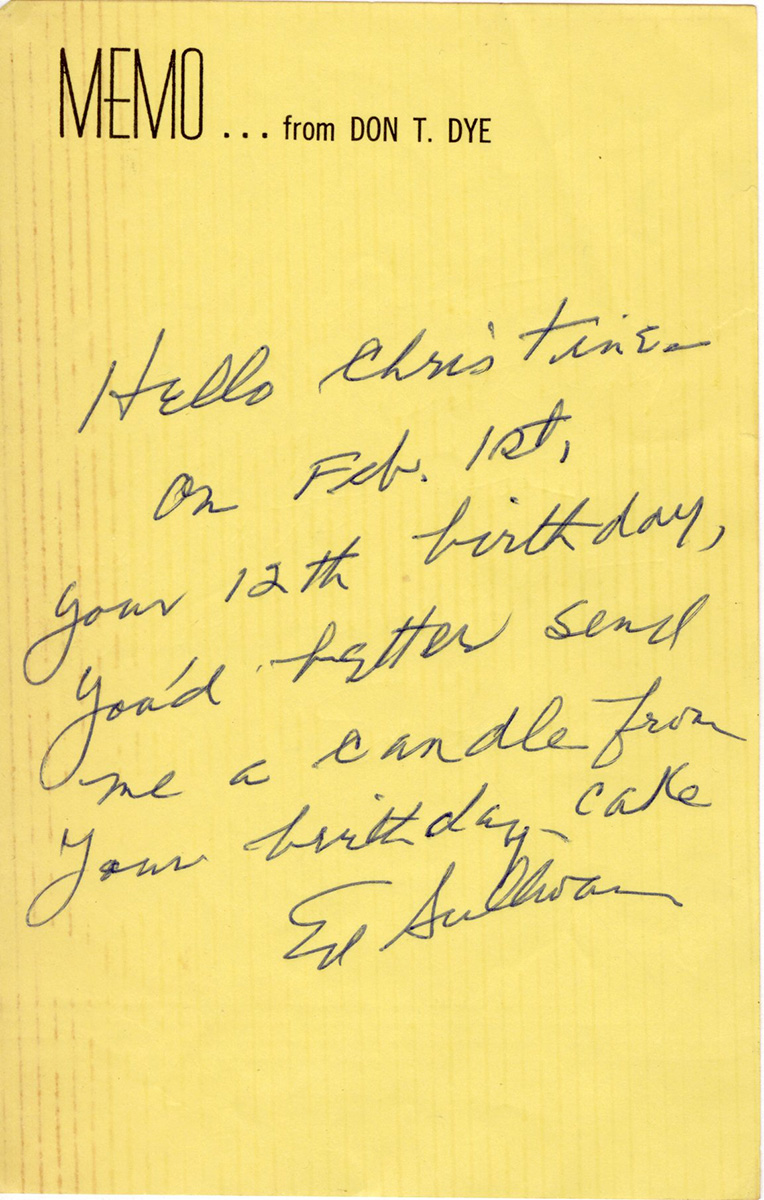 MEMO ... from DON T. DYE
Hello Christine -
On Feb. 1st,
your 12th birthday,
you'd better send
me a candle from
your birthday cake
Ed Sullivan